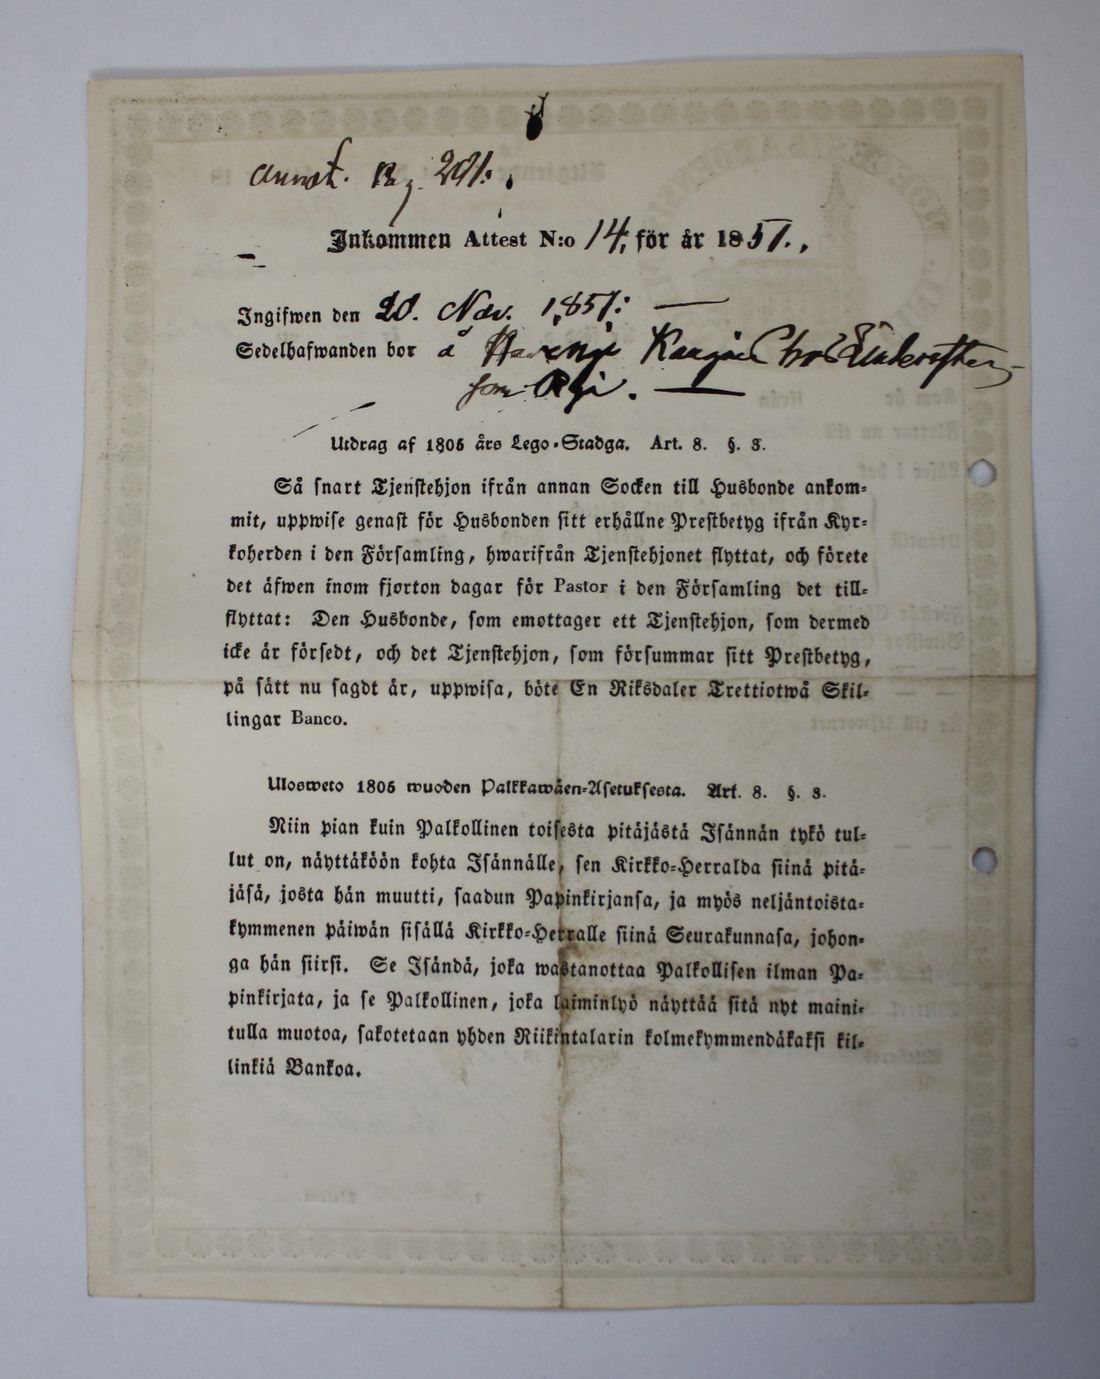 Annot. Pag. 291.
Inkommen Attest N:o 14, för år 1851.
Ingifwen den 20. Nov. 1851:
Sedelhafwanden bor å
som
Utdrag af 1805 års Lego-Stadga. Art. 8. §. 3.
Så snart Tjenstehjon ifrån annan Socken till Husbonde ankom-
mit, uppwise genast för Husbonden sitt erhållne Prestbetyg ifrån Kyr-
koherden i den Församling, hwarifrån Tjenstehjonet flyttat, och förete
det äfwen inom fjorton dagar för Pastor i den Församling det till-
flyttat: Den Husbonde, som emottager ett Tjenstehjon, som dermed
icke är försedt, och det Tjenstehjon, som försummar sitt Prestbetyg,
på sätt nu sagdt är, uppwisa, böte En Riksdaler Trettiotwå Skil-
lingar Banco.
Ulosweto 1805 wuoden Palkkawäen-Asetuksesta. Art. 8. §. 3.
Niin pian kuin Palkollinen toisesta pitäjästä Isännän tykö tul-
lut on, näyttäköön kohta Isännälle, sen Kirkko-Herralda siinä pitä-
jäsä, josta hän muutti, saadun Papinkirjansa, ja myös neljäntoista-
kymmenen päiwän sisällä Kirkko-Herralle siinä Seurakunnasa, johon-
ga hän siirsi. Se Isändä, joka wastanottaa Palkollisen ilman Pa-
pinkirjata, ja se Palkollinen, joka laiminlyö näyttää sitä nyt maini-
tulla muotoa, sakotetaan yhden Riikintalarin kolmekymmendäkaksi kil-
linkiä Bankoa.